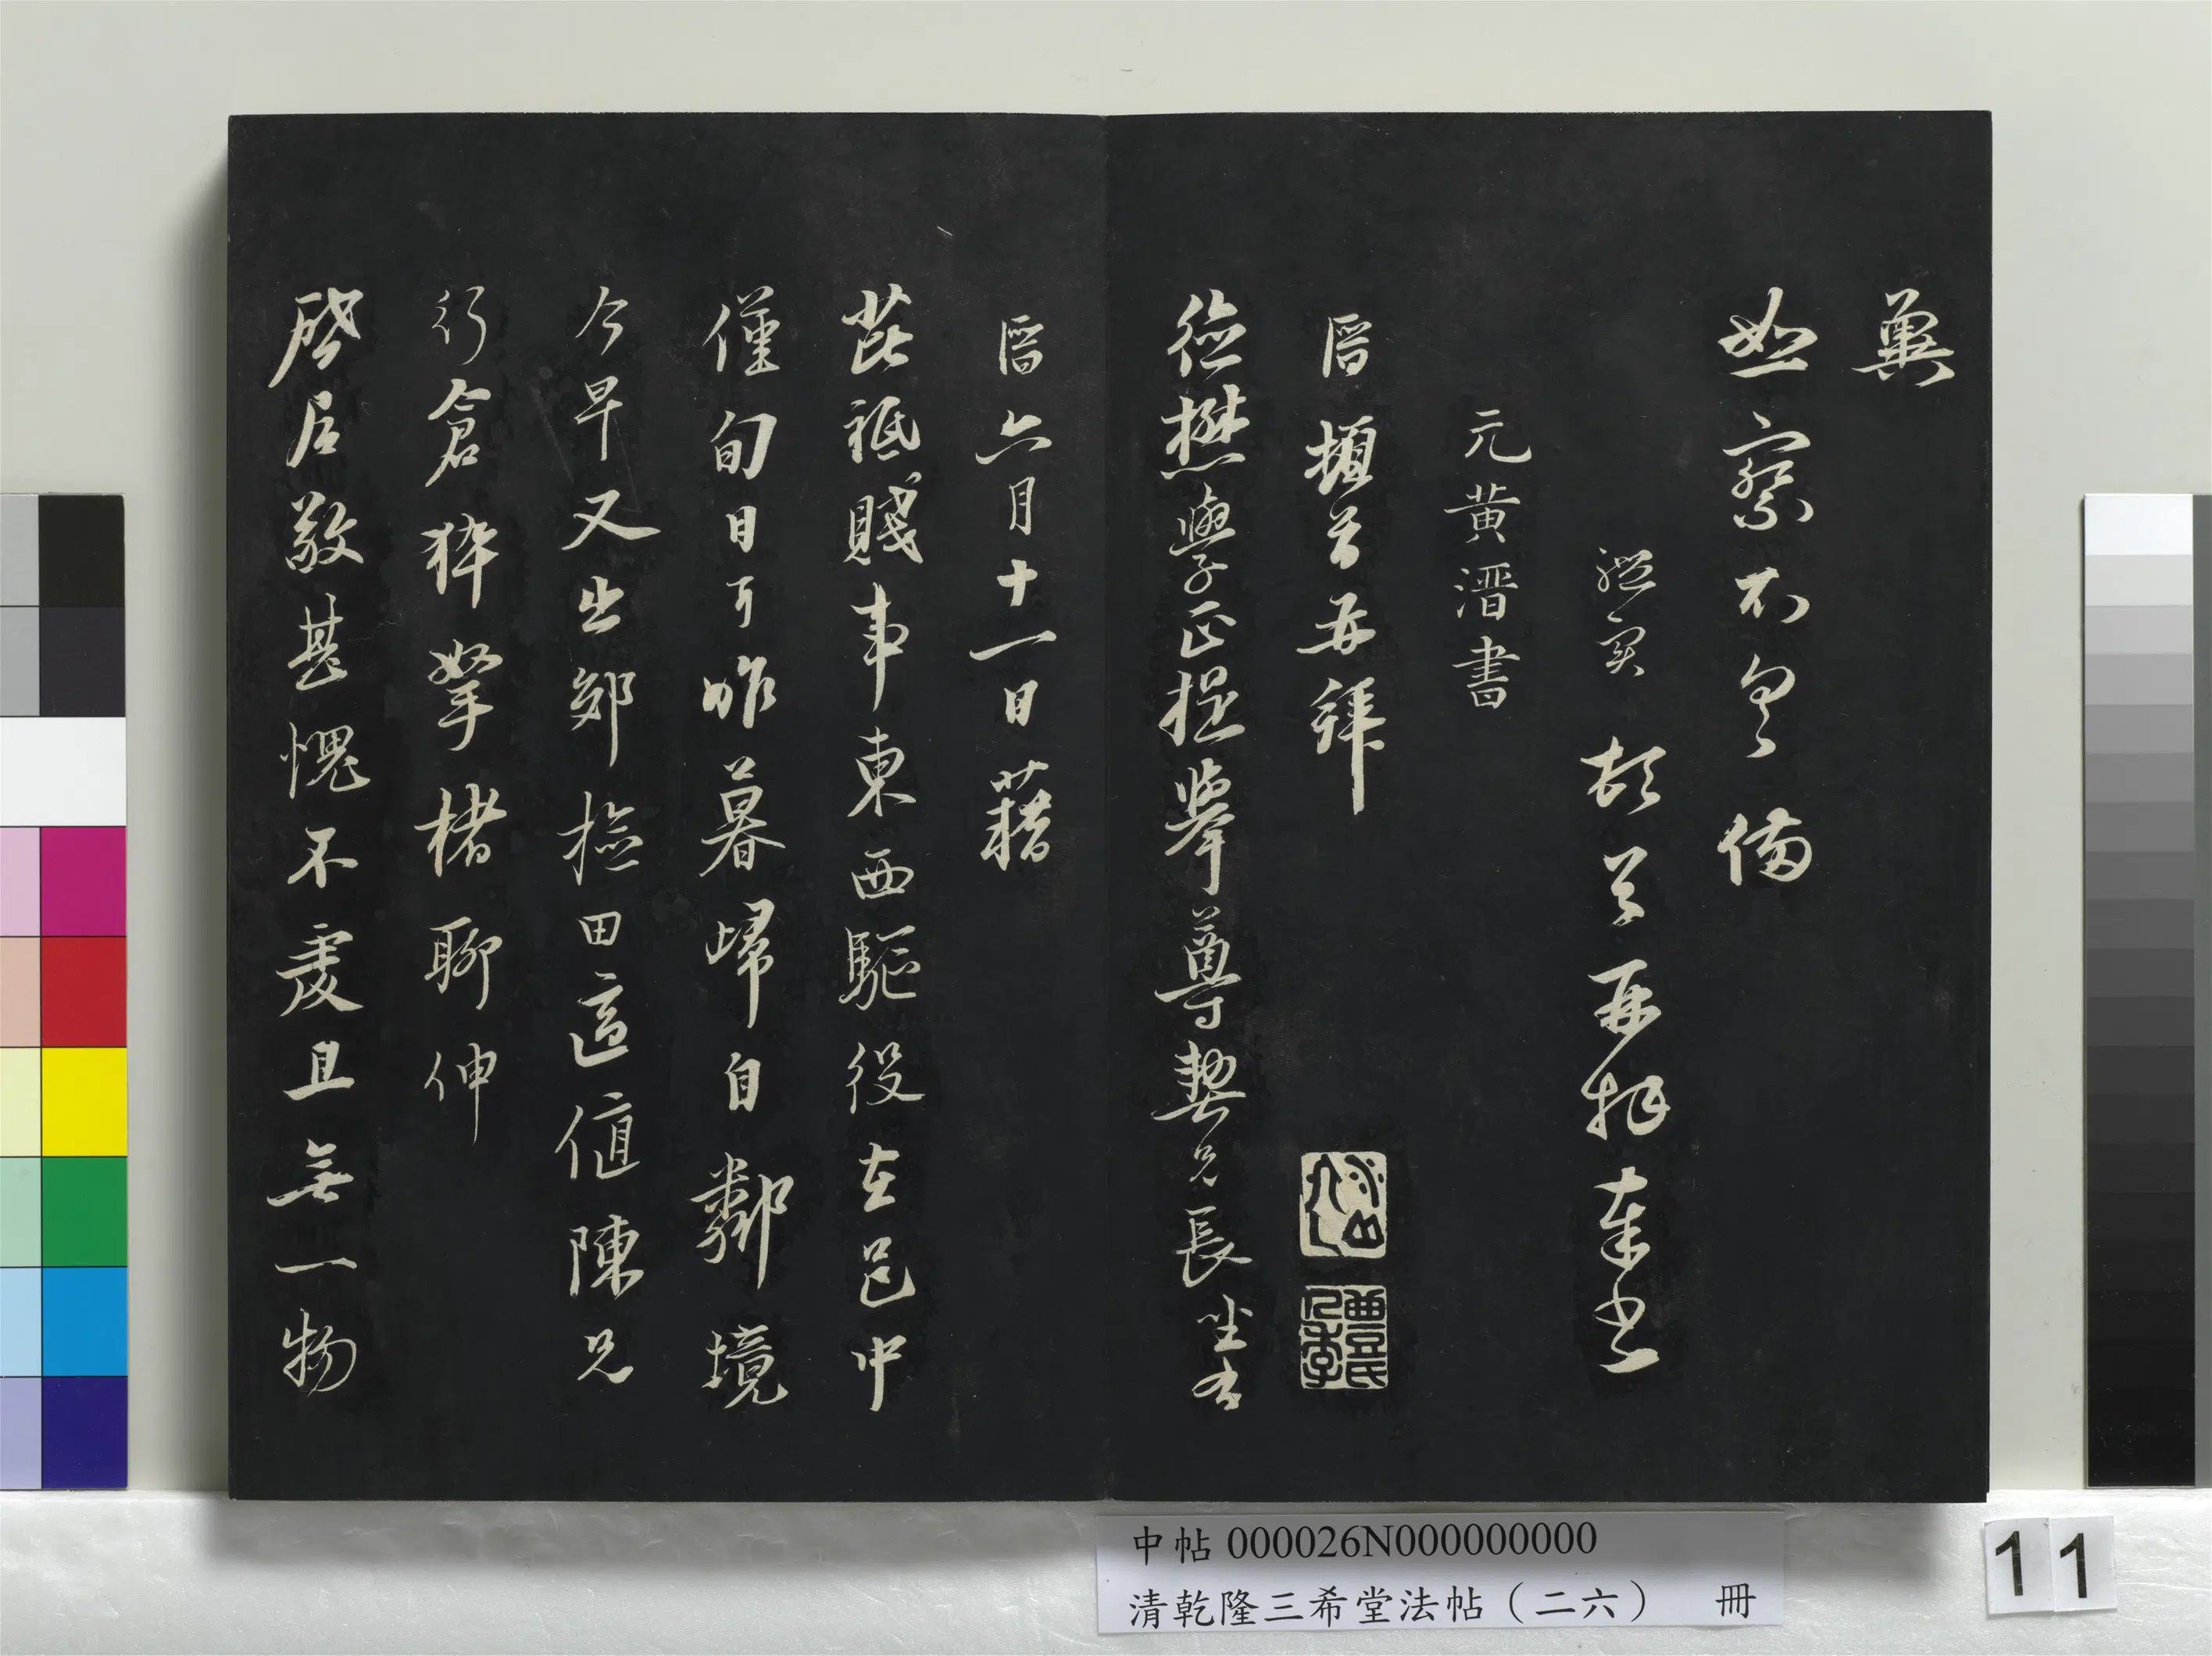 冀
照察不宣備
記室 頓首再拜奉書
元黃溍書
溍頓首再拜
德懋學正提舉尊契兄長坐右
溍六月十一日藉
芘祗賤事東西驅役在邑中
僅旬日耳昨暮歸自鄰境
今早又出郊撿田適値陳兄
行倉猝拏楮聊伸
啓居敬甚愧不虔且無一物
中帖 000026N000000000
清乾隆三希堂法帖（二六） 冊
11